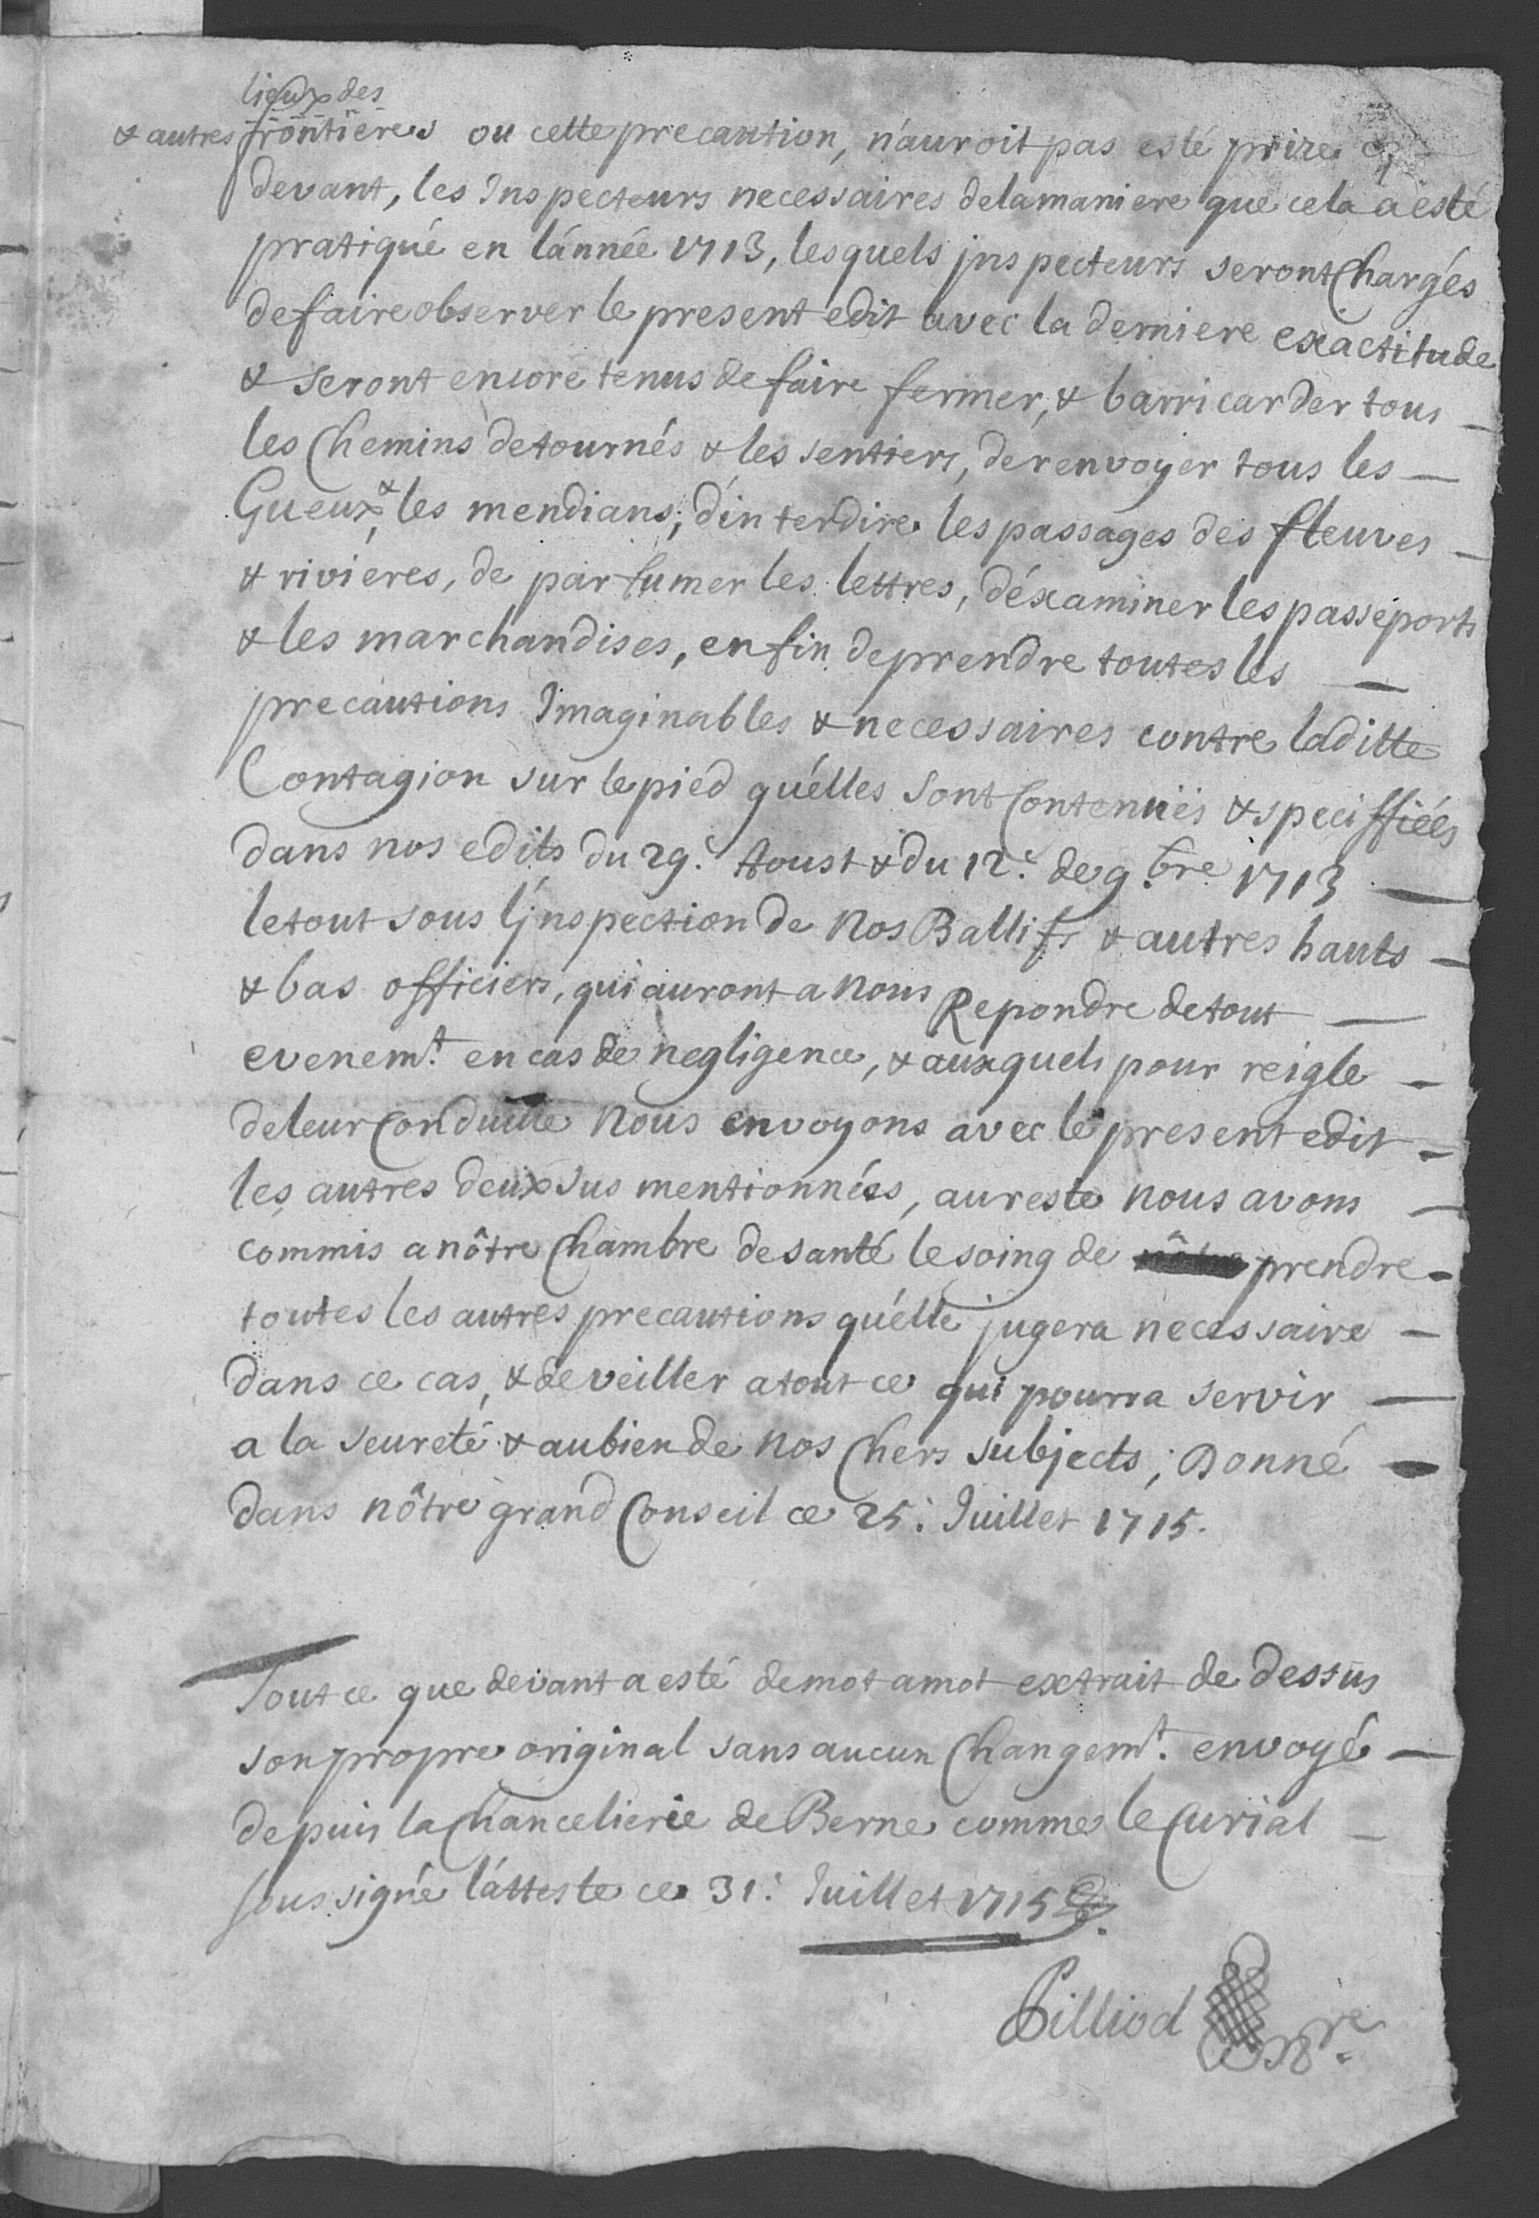 lieux des
& autres frontieres ou cette precaution, n'auroit pas esté prize cy
devant, les Inspecteurs necessaires de la maniere que cela a esté
pratiqué en l'année 1713, lesquels jnspecteurs seront Chargés
de faire observer le present edit avec la derniere exactitude
& seront encore tenus de faire fermer, & barricarder tous
les Chemins detournés & les sentiers, de renvoyer tous les
Gueux, & les mendians, d'interdire les passages des fleuves
& rivieres, de parfumer les lettres, d'éxaminer les passeports
& les marchandises, enfin de prendre toutes les
precautions Imaginables & necessaires contre laditte
Contagion sur le pied qu'elles sont Contenuës & speciffiéés
dans nos edits du 29.e Aoust & du 12.e de 9.bre 1713
le tout sous l'jnspection de Nos Ballifs & autres hauts
& bas officiers, qui auront a Nous Repondre de tout
evenem.t en cas de negligence, & auxquels pour reigle
de leur Conduitte Nous envoyons avec le present edit
les autres deux sus mentionnéss, au reste nous avons
commis a nôtre Chambre de santé le soing de nôtre prendre
toutes les autres precautions qu'elle jugera necessaire
dans ce cas, & de veiller a tout ce qui pourra servir
a la seureté & au bien de Nos Chers subjects; Donné
dans nôtre grand Conseil ce 25.e Juillet 1715.
Tout ce que devant a esté de mot a mot extrait de dessus
son propre original sans aucun Changem.t envoyé
depuis la Chancelierie de Berne comme le Curial
soussigné l'atteste ce 31.e Juillet 1715
Pilliod